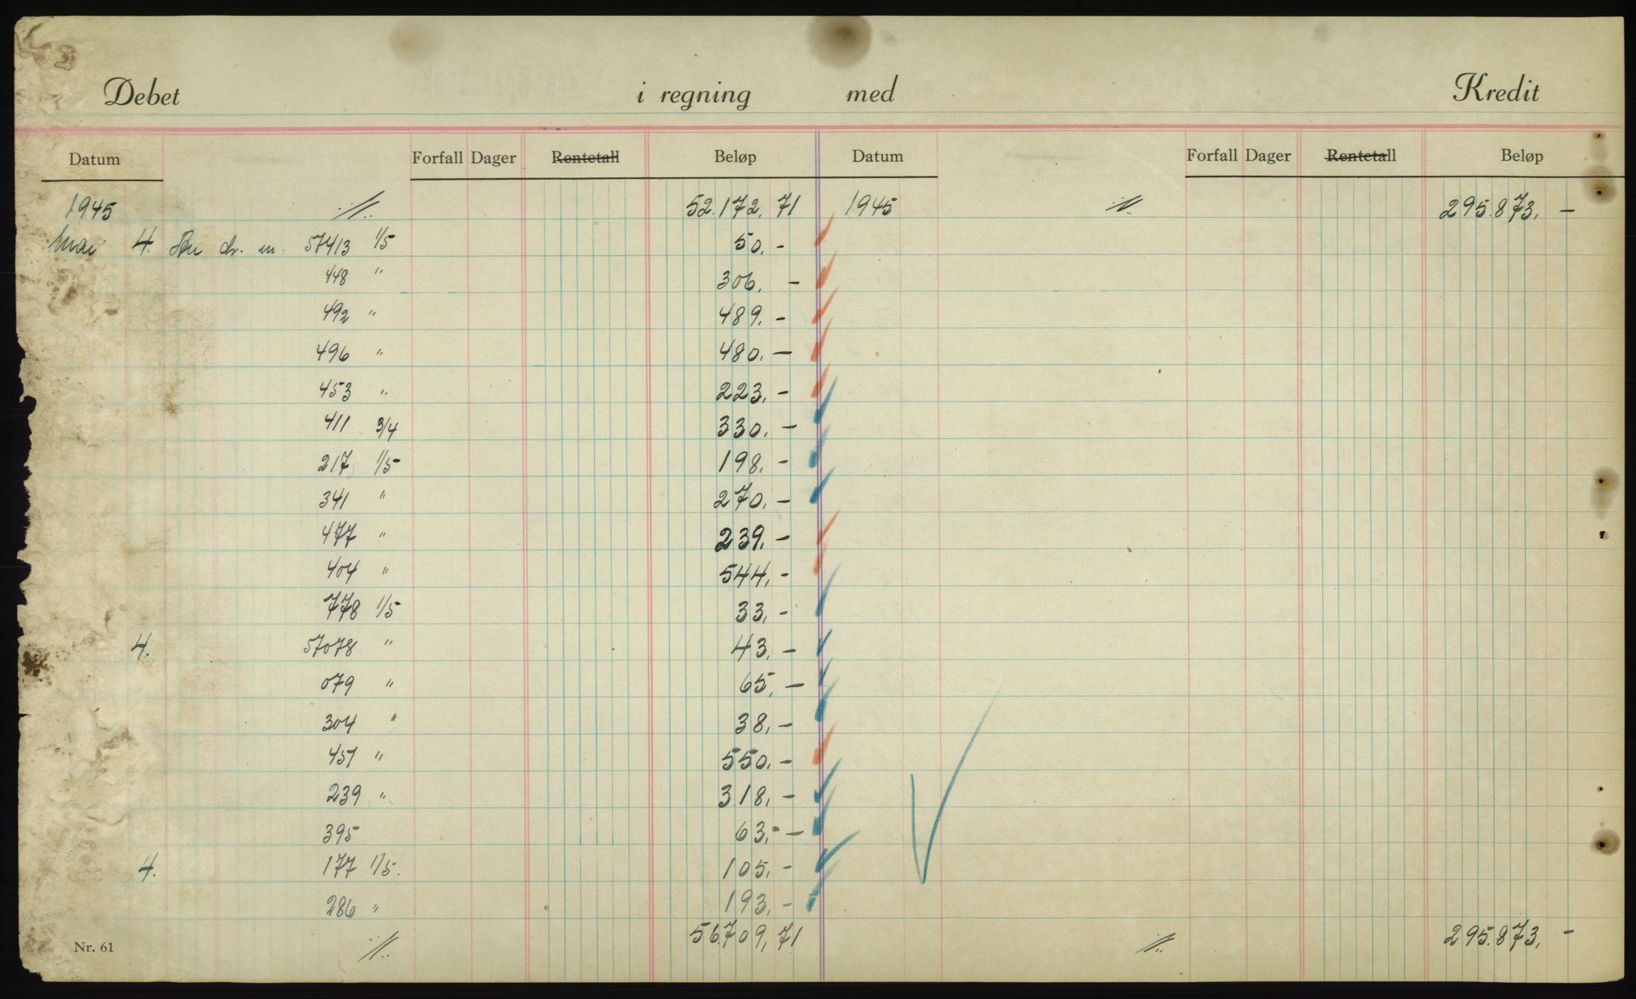 Debet i regning med Kredit
Datum Forfall Dager Rentetall Beløp Datum Forfall Dager Rentetall Beløp
1945 ·//. 52.172,71 1945 ·//. 295.873,-
mai 4. dr. m. 57413 1/5 50.-
448 " 306.-
492 " 489.-
496 " 480.-
453 " 223.-
411 3/4 330.-
217 1/5 198.-
341 " 270.-
477 " 239.-
404 " 544.-
778 1/5 33.-
4. 57078 " 43.-
079 " 65.-
304 " 38.-
451 " 550.-
239 " 318.-
395 63.-
4. 177 1/5. 105.-
286 " 193.-
Nr. 61 ·//. 56709,71 ·//. 295.873,-